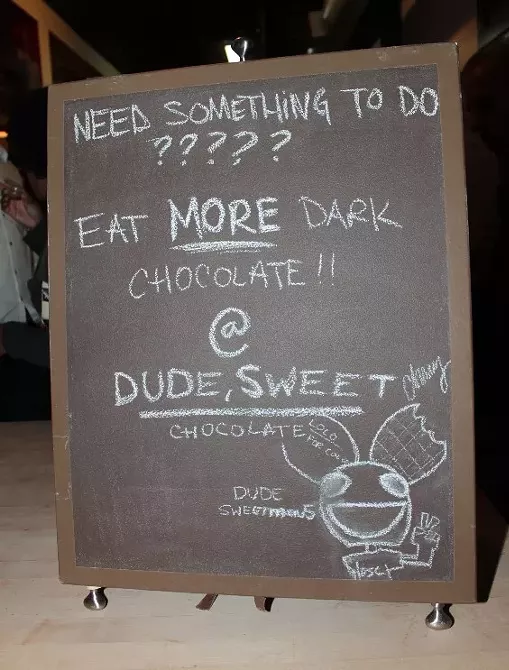 NEED SOMETHING TO DO
?????
EAT MORE DARK
CHOCOLATE!!
@
DUDE, SWEET
CHOCOLATE
LOCO
FOR COCO
DUDE